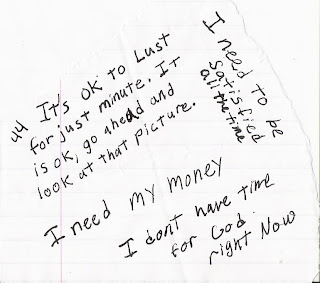 44 It's OK to Lust
for just minute. It
is ok, go ahead and
look at that picture.
I need to be
satisfied
all the time
I need my money
I dont have time
for God
right Now